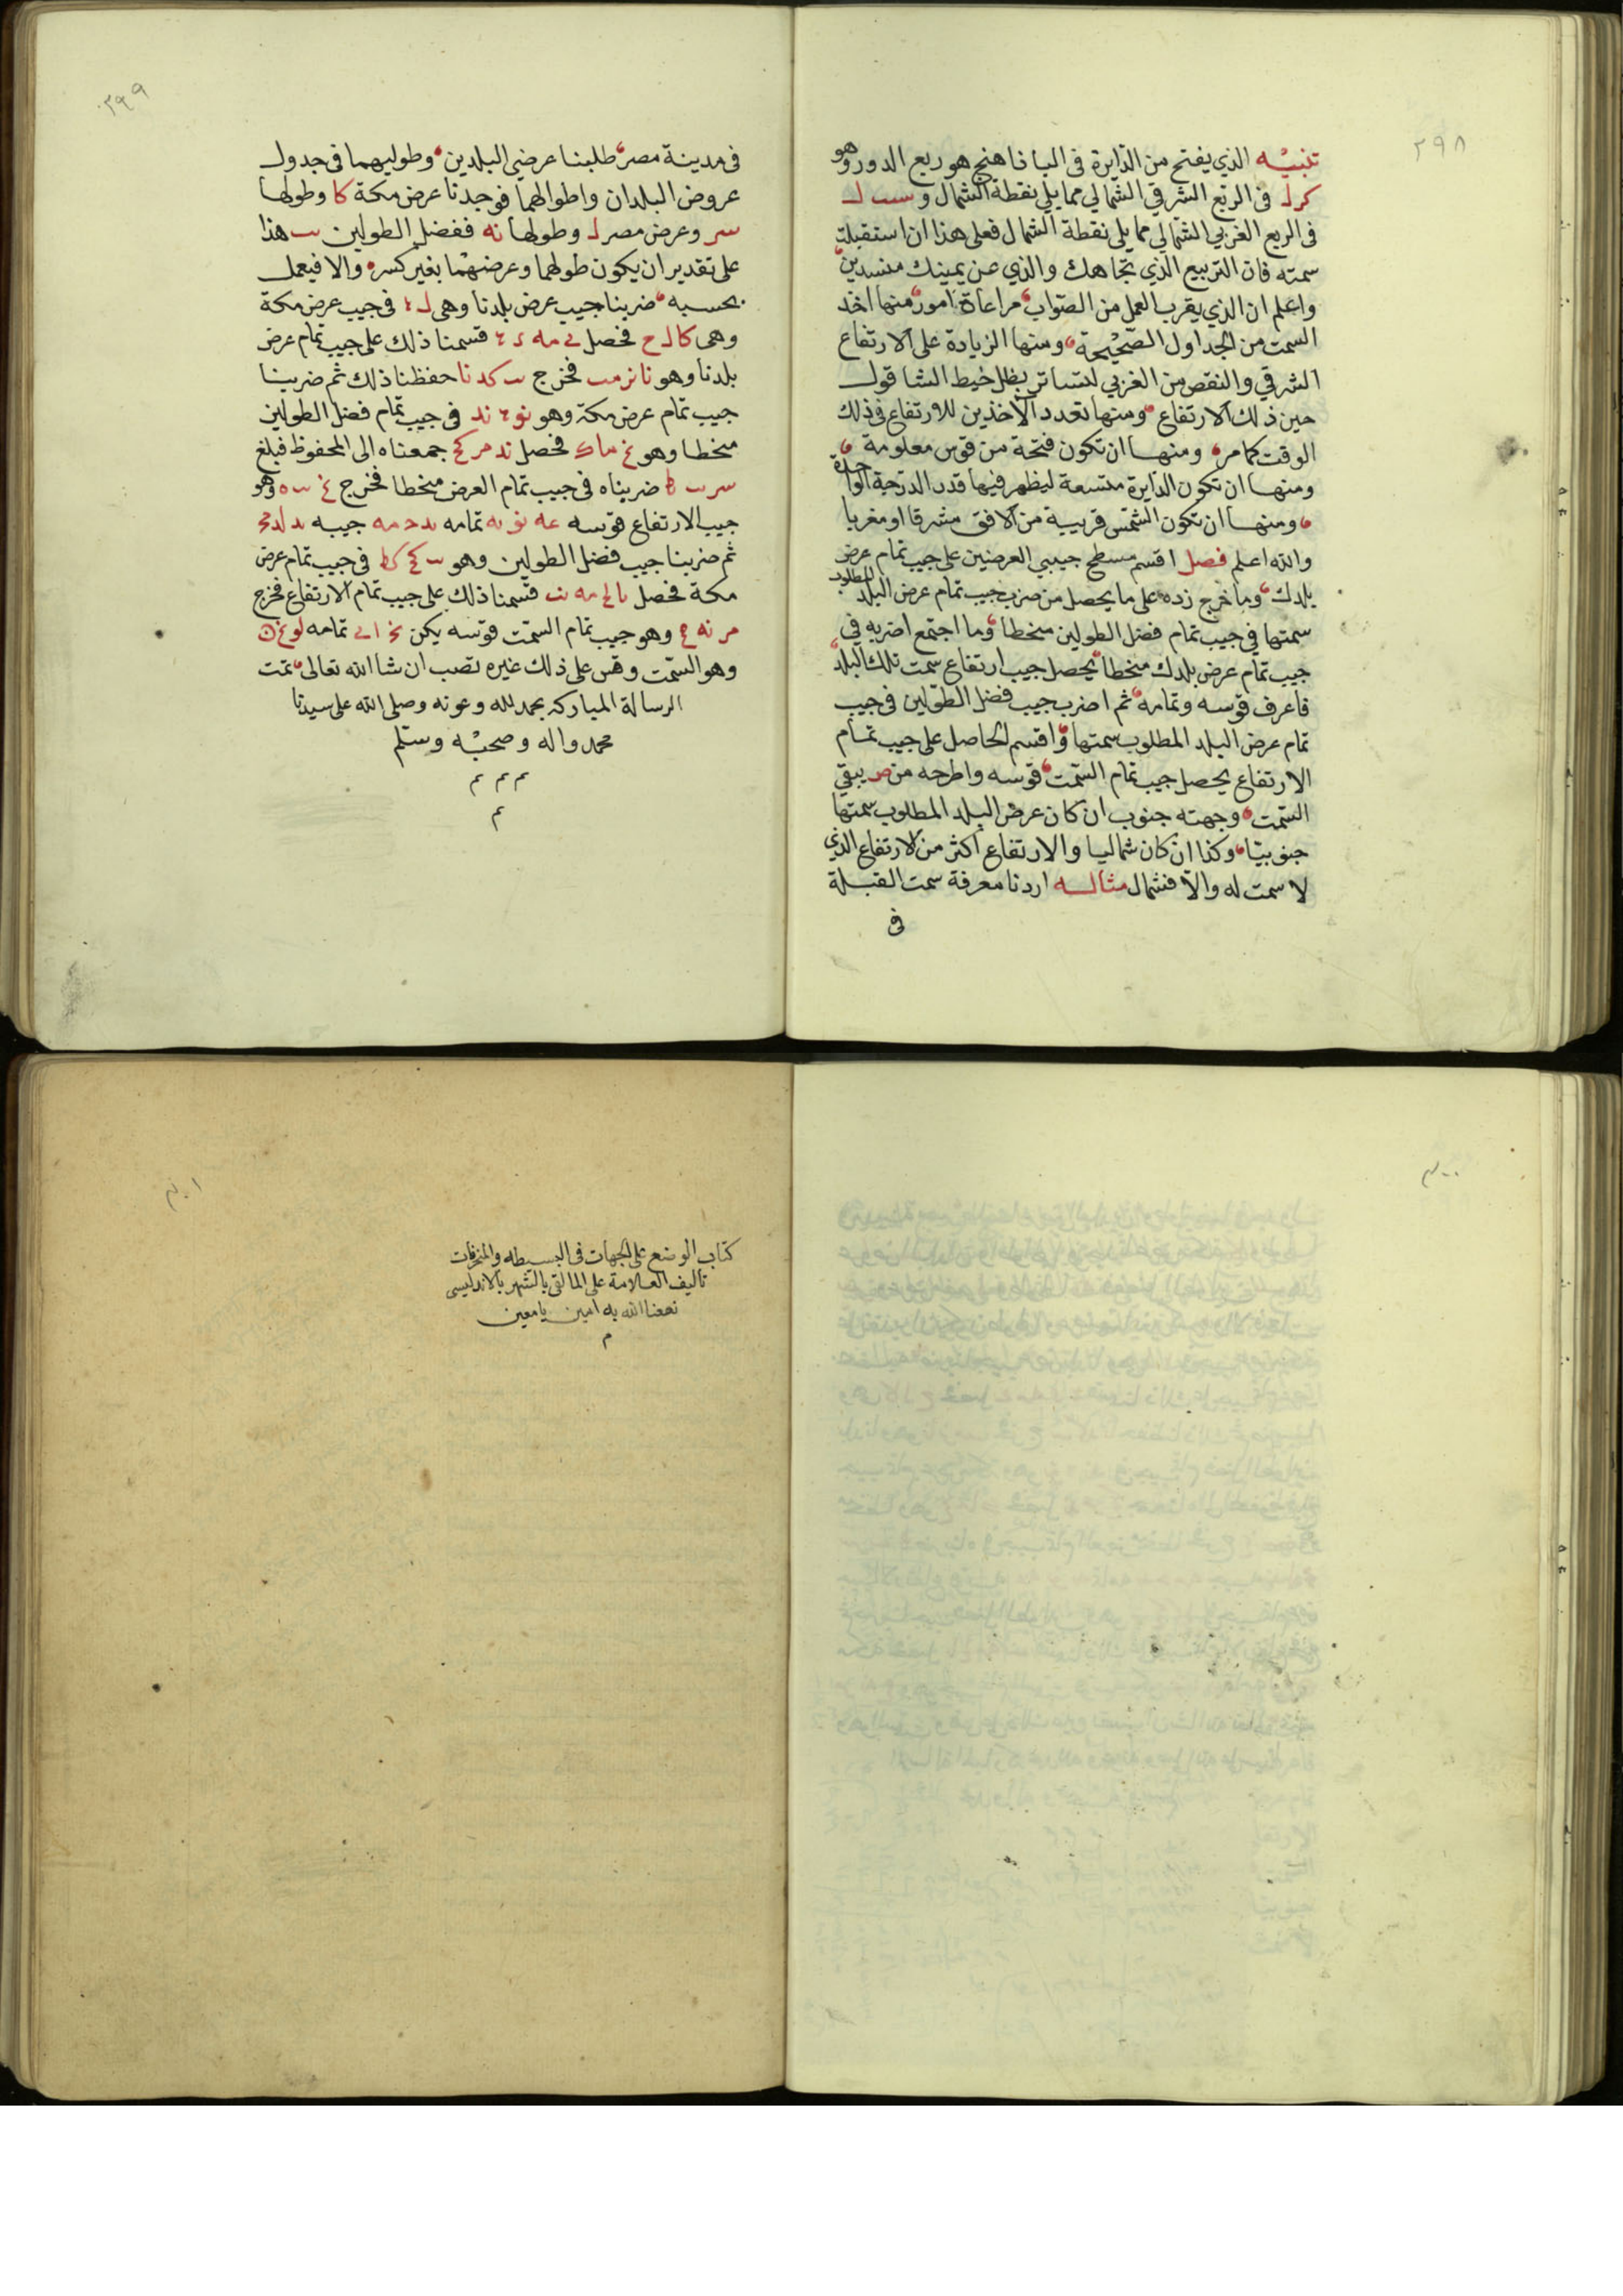 ٢٩٨
تنبيه الذي يفتح من الدايرة في الباذاهنج هو ربع الدور وهو
كر ل في الربع الشرقي الشمالي مما يلي نقطة الشمال و سب ل
في الربع الغربي الشمالي مما يلي نقطة الشمال فعلى هذا ان استقبلت
سمته فان التربيع الذي تجاهك والذي عن يمينك منسدين
واعلم ان الذي يقرب العمل من الصواب مراعاة امور منها اخذ
السمت من الجداول الصحيحة ومنها الزيادة على الارتفاع
الشرقي والنقص من الغربي لتساتر بظل خيط الشاقول
حين ذلك الارتفاع ومنها تعدد الآخذين للارتفاع في ذلك
الوقت كما مر ومنها ان تكون فتحة من قوس معلومة
ومنها ان تكون الدايرة متسعة ليظهر فيها قدر الدرجة الواحدة
ومنها ان تكون الشمس قريبة من الافق مشرقا او مغربا
والله اعلم فصل اقسم مسطح جيبي العرضين على جيب تمام عرض
بلدك وما خرج زده على ما يحصل من ضرب جيب تمام عرض البلد المطلوب
سمتها في جيب تمام فضل الطولين منخطا وما اجتمع اضربه في
جيب تمام عرض بلدك منخطا يحصل جيب ارتفاع سمت تلك البلد
فاعرف قوسه وتمامه ثم اضرب جيب فضل الطولين في جيب
تمام عرض البلد المطلوب سمتها واقسم الحاصل على جيب تمام
الارتفاع يحصل جيب تمام السمت قوسه واطرحه من ص يبقى
السمت وجهته جنوب ان كان عرض البلد المطلوب سمتها
جنوبيا وكذا ان كان شماليا والارتفاع اكثر من الارتفاع الذي
لا سمت له والا فشمال مثاله اردنا معرفة سمت القبلة
في
٢٩٩
في مدينة مصر طلبنا عرضي البلدين وطوليهما في جدول
عروض البلدان واطوالها فوجدنا عرض مكة كا وطولها
سر وعرض مصر ل وطولها نه ففضل الطولين يب هذا
على تقدير ان يكون طولهما وعرضهما بغير كسر والا فيعمل
بحسبه ضربنا جيب عرض بلدنا وهي ل في جيب عرض مكة
وهي كا ل ح فحصل مه قسمنا ذلك على جيب تمام عرض
بلدنا وهو نا نر مب فخرج يب كد نا حفظنا ذلك ثم ضربنا
جيب تمام عرض مكة وهو نو ند في جيب تمام فضل الطولين
منخطا وهو ما فحصل ند مر كح جمعناه الى المحفوظ فبلغ
سر يب ضربناه في جيب تمام العرض منخطا فخرج وهو
جيب الارتفاع قوسه عه نو يه تمامه يد ح مه جيبه يد لد
ثم ضربنا جيب فضل الطولين وهو يب كح كط في جيب تمام عرض
مكة فحصل مه قسمنا ذلك على جيب تمام الارتفاع فخرج
مر نه وهو جيب تمام السمت قوسه يكن تمامه لو
وهو السمت وقس على ذلك غيره تصب ان شا الله تعالى تمت
الرسالة المباركة بحمد لله وعونه وصلى الله على سيدنا
محمد واله وصحبه وسلم
م م م
م
٣٠٠
٣٠١
كتاب الوضع على الجهات في البسيطه والمنحرفات
تاليف العلامة على المالقى بالشهر بالاندليسى
نفعنا الله به امين يا معين
م